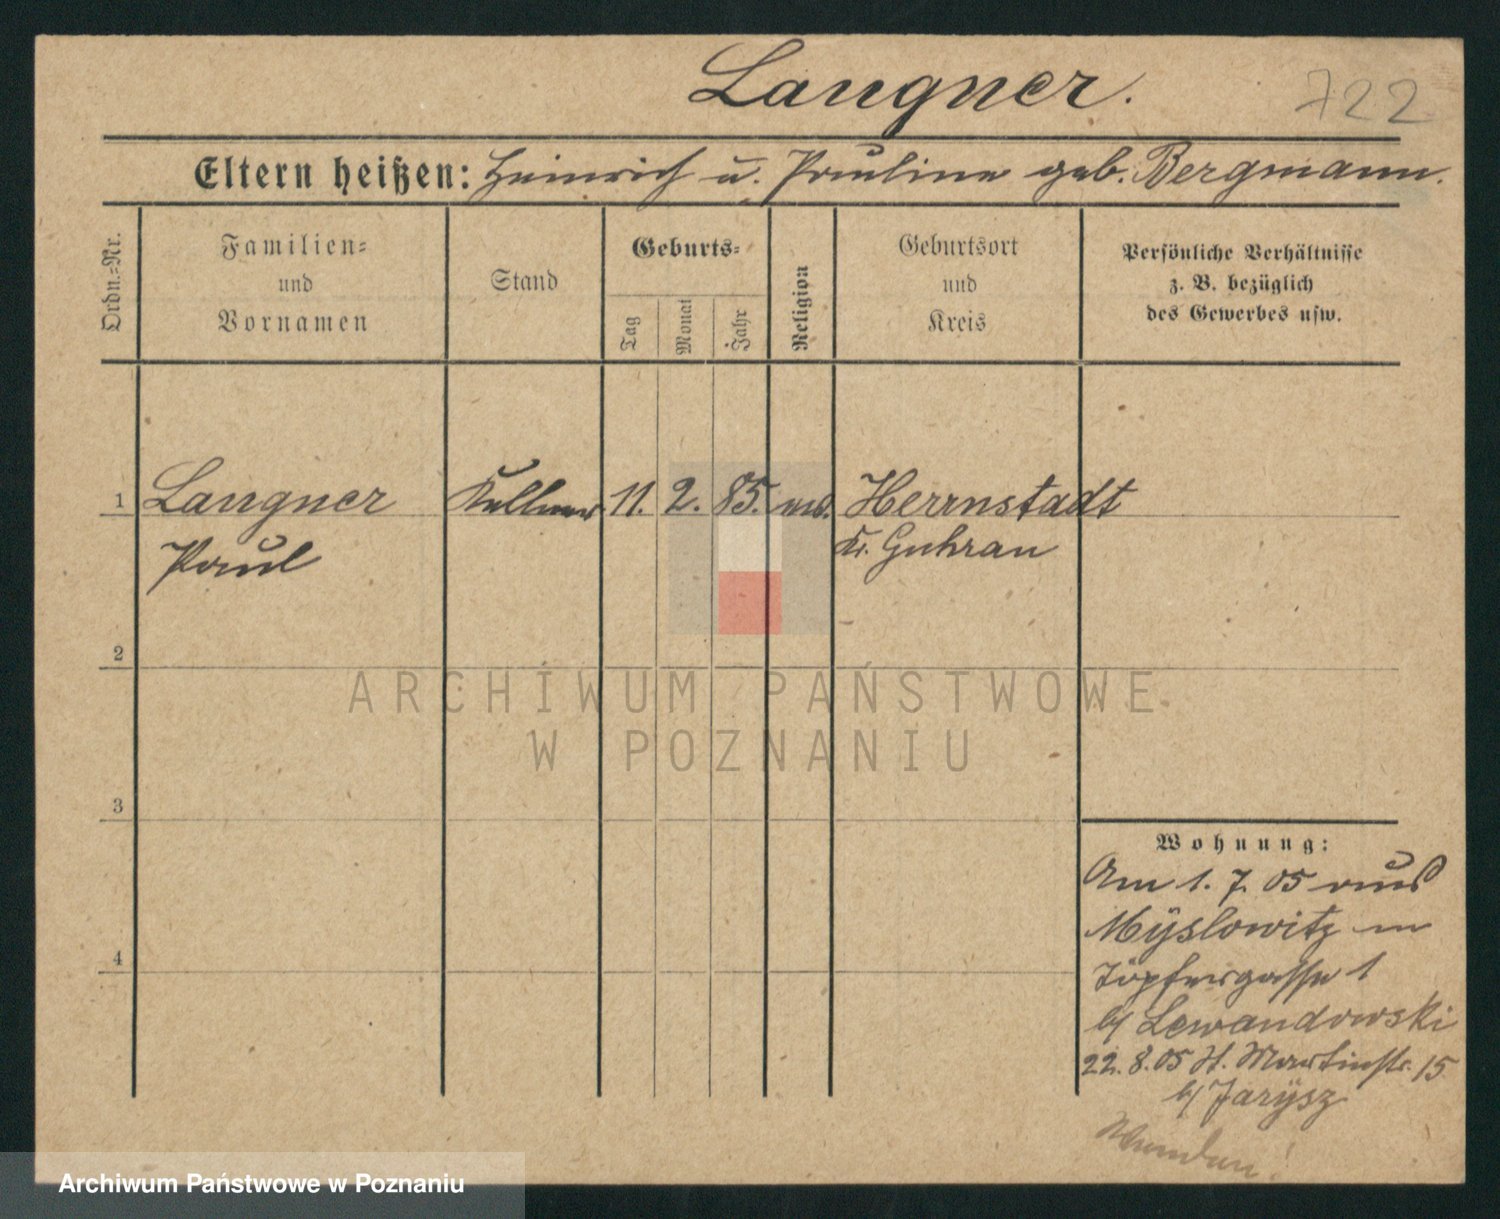 Langner. 722
Eltern heißen: Heinrich u. Pauline geb. Bergmann.
Ordn.-Nr.
Familien-
und
Vornamen
Stand
Geburts-
Tag
Monat
Jahr
Religion
Geburtsort
und
Kreis
Persönliche Verhältnisse
z. B. bezüglich
des Gewerbes usw.
1 Langner Kellner 11. 2. 85. Herrnstadt
Paul Kr. Guhrau
2
3
4
Wohnung:
Am 1. 7. 05 aus
Myslowitz in
Töpfergasse 1
b/ Lewandowski
22. 8. 05 St. Martinstr. 15
b/ Jarysz
ARCHIWUM PAŃSTWOWE
W POZNANIU
Archiwum Państwowe w Poznaniu